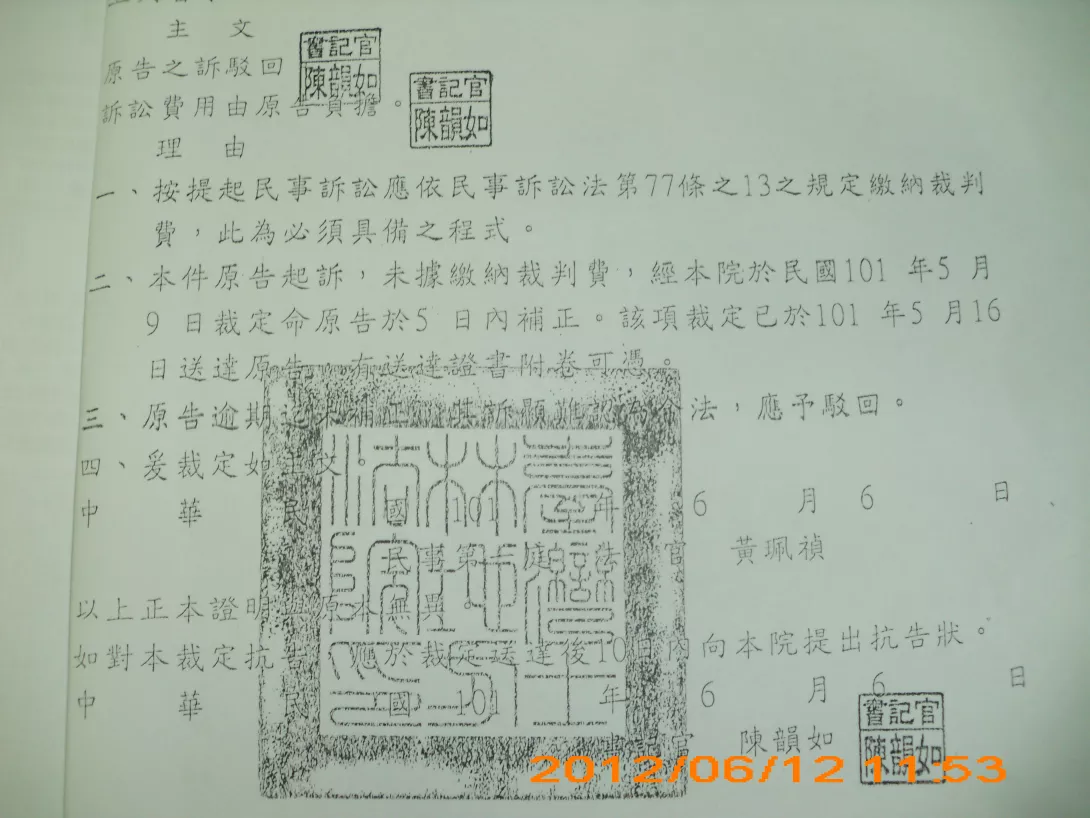 主 文
原告之訴駁回
訴訟費用由原告負擔。
書記官
陳韻如
書記官
陳韻如
理 由
一、按提起民事訴訟應依民事訴訟法第77條之13之規定繳納裁判
費，此為必須具備之程式。
二、本件原告起訴，未據繳納裁判費，經本院於民國101 年5 月
9 日裁定命原告於5 日內補正。該項裁定已於101 年5 月16
日送達原告，有送達證書附卷可憑。
三、原告逾期迄未補正，其訴顯難認為合法，應予駁回。
四、爰裁定如主文。
中 華 民 國 101 年 6 月 6 日
民事第 庭 法 官 黃珮禎
以上正本證明與原本無異。
如對本裁定抗告，應於裁定送達後10日內向本院提出抗告狀。
中 華 民 國 101 年 6 月 6 日
書記官 陳韻如
書記官
陳韻如
2012/06/12 11:53